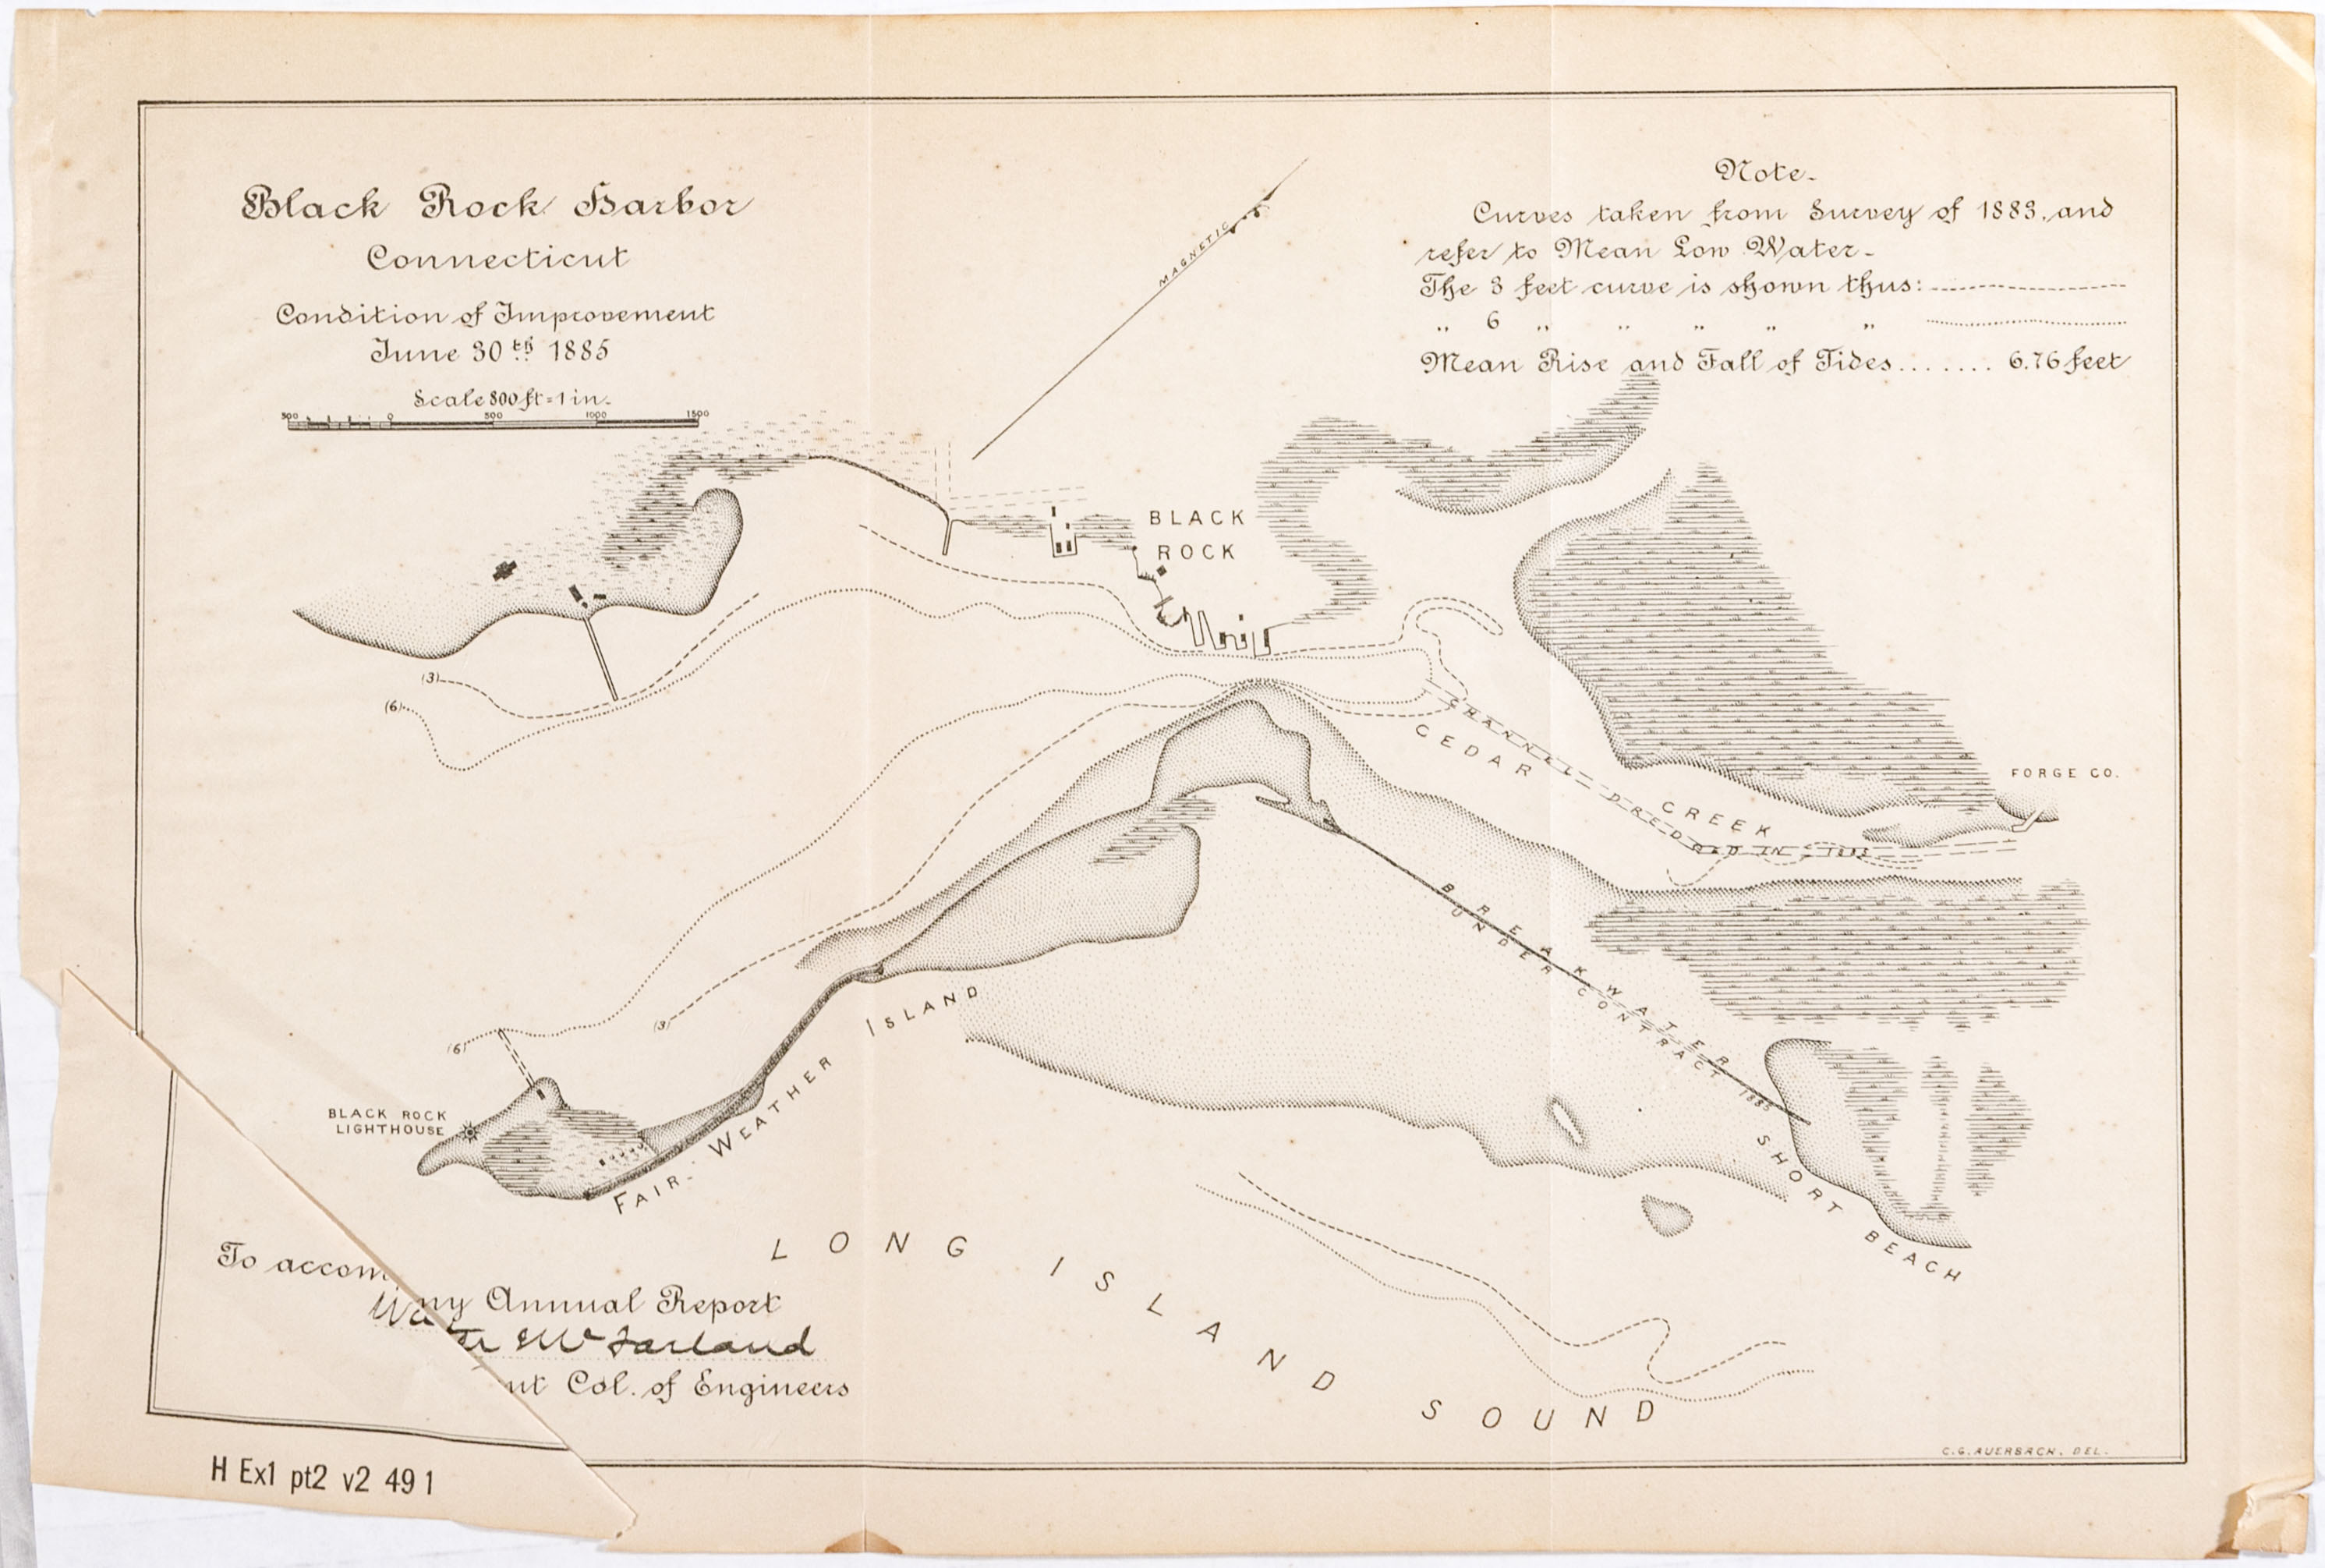 Black Rock Harbor
Connecticut
Condition of Improvement
June 30th 1885
Scale 800 ft = 1 in.
500 0 500 1000 1500
MAGNETIC
Note.
Curves taken from Survey of 1883, and
refer to Mean Low Water.
The 3 feet curve is shown thus:
„ 6 „ „ „ „ „
Mean Rise and Fall of Tides....... 6.76 feet
BLACK
ROCK
(3)
(6)
CHANNEL DREDGED IN
CEDAR CREEK
FORGE CO.
BREAKWATER
UNDER CONTRACT 1885
(3)
(6)
FAIR-WEATHER ISLAND
BLACK ROCK
LIGHTHOUSE
SHORT BEACH
LONG ISLAND SOUND
To accom
ny Annual Report
McFarland
Col. of Engineers
C.G. AUERBACH. DEL.
H Ex1 pt2 v2 49 1